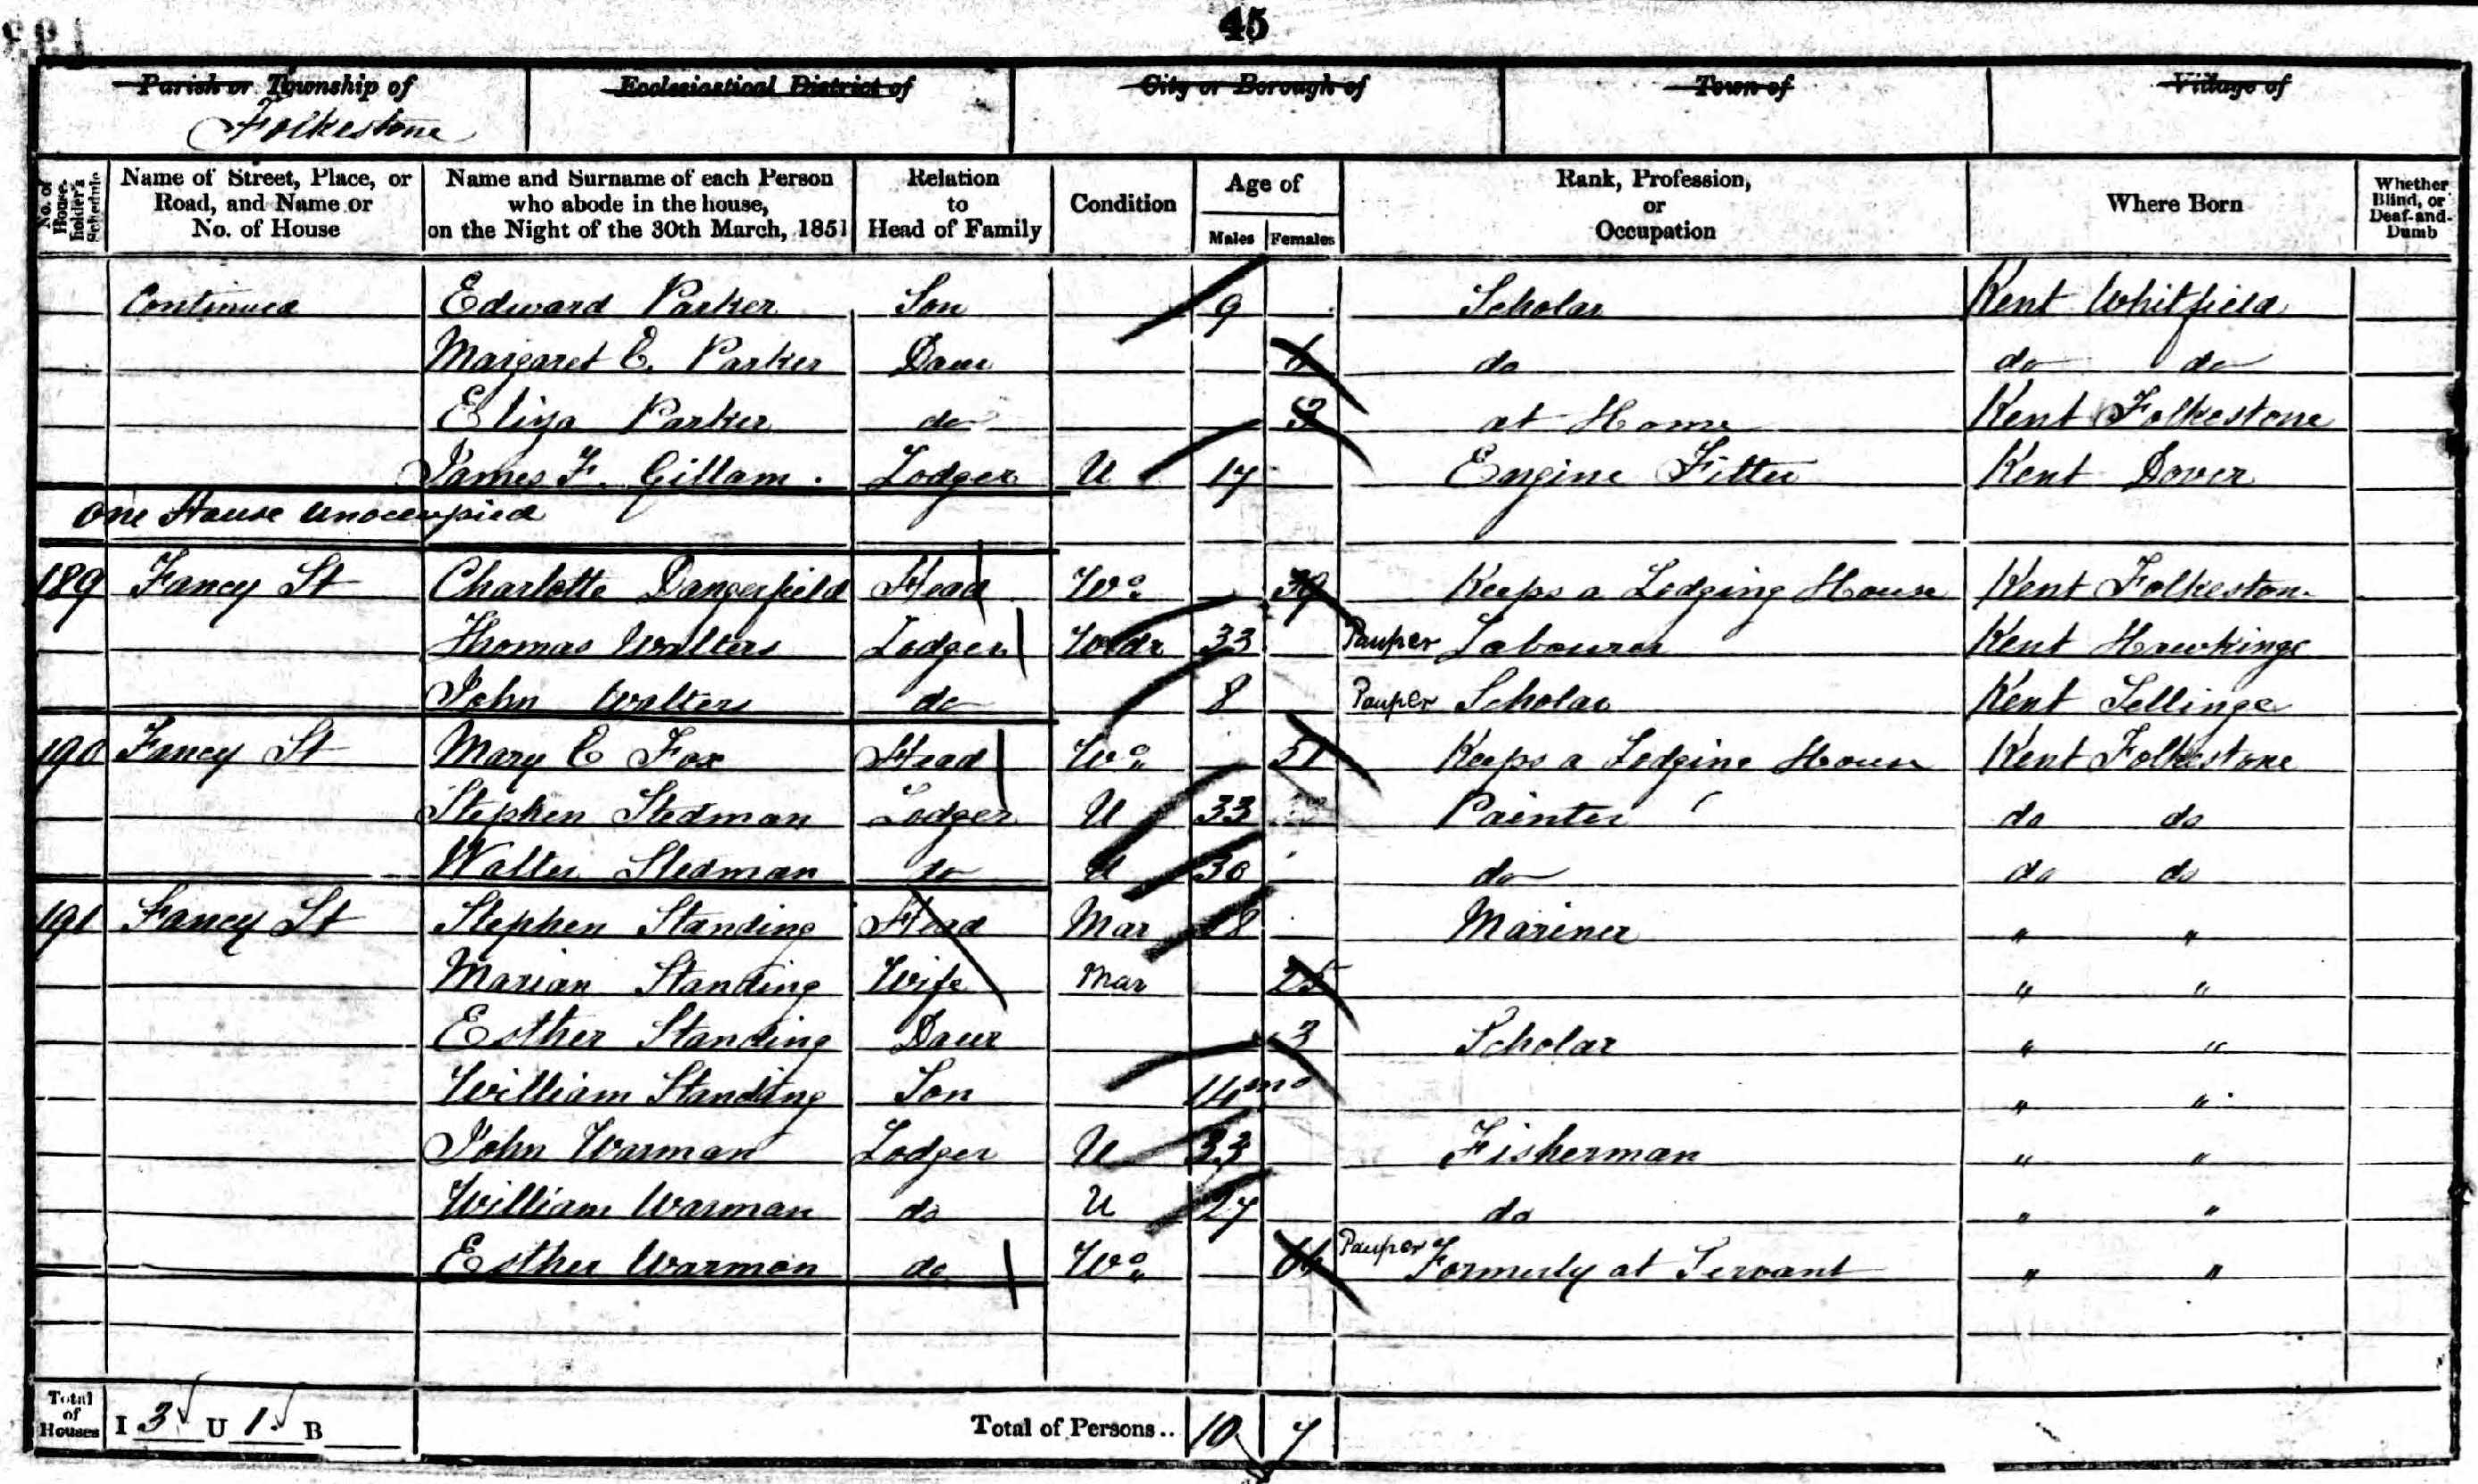 45
Parish or Township of
Folkestone
Ecclesiastical District of
City or Borough of
Town of
Village of
No. of Householder's Schedule
Name of Street, Place, or Road, and Name or No. of House
Name and Surname of each Person who abode in the house, on the Night of the 30th March, 1851
Relation to Head of Family
Condition
Age of
Males Females
Rank, Profession, or Occupation
Where Born
Whether Blind, or Deaf-and-Dumb
Continued Edward Parker Son 9 Scholar Kent Whitfield
Margaret E. Parker Daur 6 do do do
Eliza Parker do 3 at Home Kent Folkestone
James F. Gillam. Lodger U 17 Engine Fitter Kent Dover
One House Unoccupied
189 Fancy St Charlotte Dangerfield Head Wo. 39 Keeps a Lodging House Kent Folkestone
Thomas Walters Lodger Wdr 33 Pauper Labourer Kent Hawkinge
John Walters do 8 Pauper Scholar Kent Sellinge
190 Fancy St Mary E Fox Head Wo. 51 Keeps a Lodging House Kent Folkestone
Stephen Stedman Lodger U 33 Painter do do
Walter Stedman do U 30 do do do
191 Fancy St Stephen Standing Head Mar 28 Mariner " "
Marian Standing Wife Mar 25 " "
Esther Standing Daur 3 Scholar " "
William Standing Son 14 mo " "
John Warman Lodger U 33 Fisherman " "
William Warman do U 27 do " "
Esther Warman do Wo. Pauper Formerly at Servant " "
Total of Houses I 3 U 1 B
Total of Persons.. 10 7